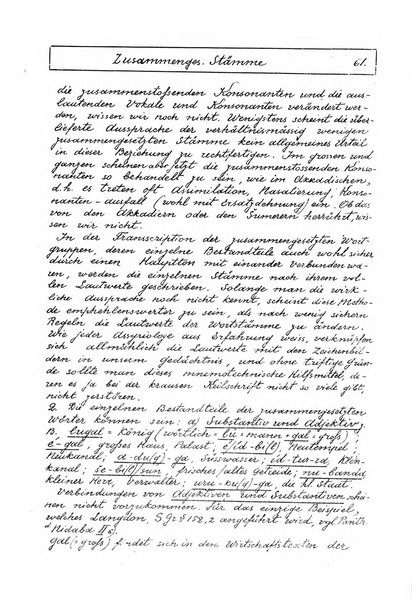 Zusammenges. Stämme 61.
die zusammenstoßenden Konsonanten und die aus-
lautenden Vokale und Konsonanten verändert wer-
den, wissen wir noch nicht. Wenigstens scheint die über-
lieferte Aussprache der verhältnismässig wenigen
zusammengesetzten Stämme kein allgemeines Urteil
in dieser Beziehung zu rechtfertigen. Im grossen und
ganzen scheinen aber jetzt die zusammenstossenden Konso-
nanten so behandelt zu sein, wie im Akkadischen,
d.h. es treten oft Assimilation, Nasalierung, Konso-
nanten-ausfall (wohl mit Ersatzdehnung) ein. Ob das
von den Akkadiern oder den Sumerern herrührt, wis-
sen wir nicht.
In der Transscription der zusammengesetzten Wort-
gruppen, deren einzelne Bestandteile auch wohl sicher
durch einen Hauptton mit einander verbunden wa-
ren, werden die einzelnen Stämme nach ihrem vol-
len Lautwerte geschrieben. Solange man die wirk-
liche Aussprache noch nicht kennt, scheint diese Metho-
de empfehlenswerter zu sein, als nach wenig sichern
Regeln die Lautwerte der Wortstämme zu ändern.
Wie jeder Assyriologe aus Erfahrung weiss, verknüpfen
sich allmählich die Lautwerte mit den Zeichenbil-
dern in unserm Gedächtnis, und ohne triftige Grün-
de sollte man dieses mnemotechnische Hilfsmittel, de-
ren es ja bei der krausen Keilschrift nicht so viele gibt,
nicht zerstören.
2. Die einzelnen Bestandteile der zusammengesetzten
Wörter können sun: a) Substantiv und Adjektiv;
B. lugal = König (wörtlich = lu = mann + gal = groß);
e-gal, großes Haus, Palast; Neutempel;
Neukanal; a-du(g)-ga, Süsswasser; id-tur-ra, Klein-
kanal; še-bi(l)sun, frisches/altes Getreide; nu-banda
kleiner Herr, Verwalter; uru-ku(g)-ga, die hl. Stadt.
Verbindungen von Adjektiven und Substantiven schei-
nen nicht vorzukommen. Für das einzige Beispiel,
welches Langdon, S.Gr § 152,2 angeführt wird, vgl. Panth
Nidaba
gal (= groß) findet sich in den Wirtschaftstexten der